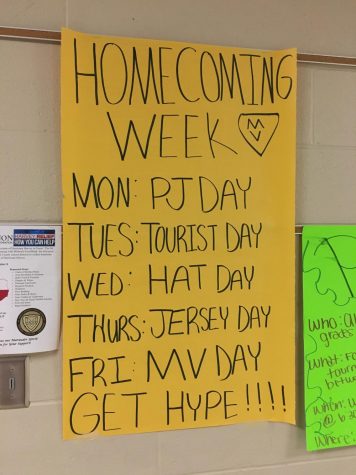 HOMECOMING
WEEK MV
MON: PJ DAY
TUES: TOURIST DAY
WED: HAT DAY
THURS: JERSEY DAY
FRI: MV DAY
GET HYPE!!!!
HOW YOU CAN HELP
WHO:
grads
WHAT:
tourn
betw
WHEN:
@ 6:30
Where: